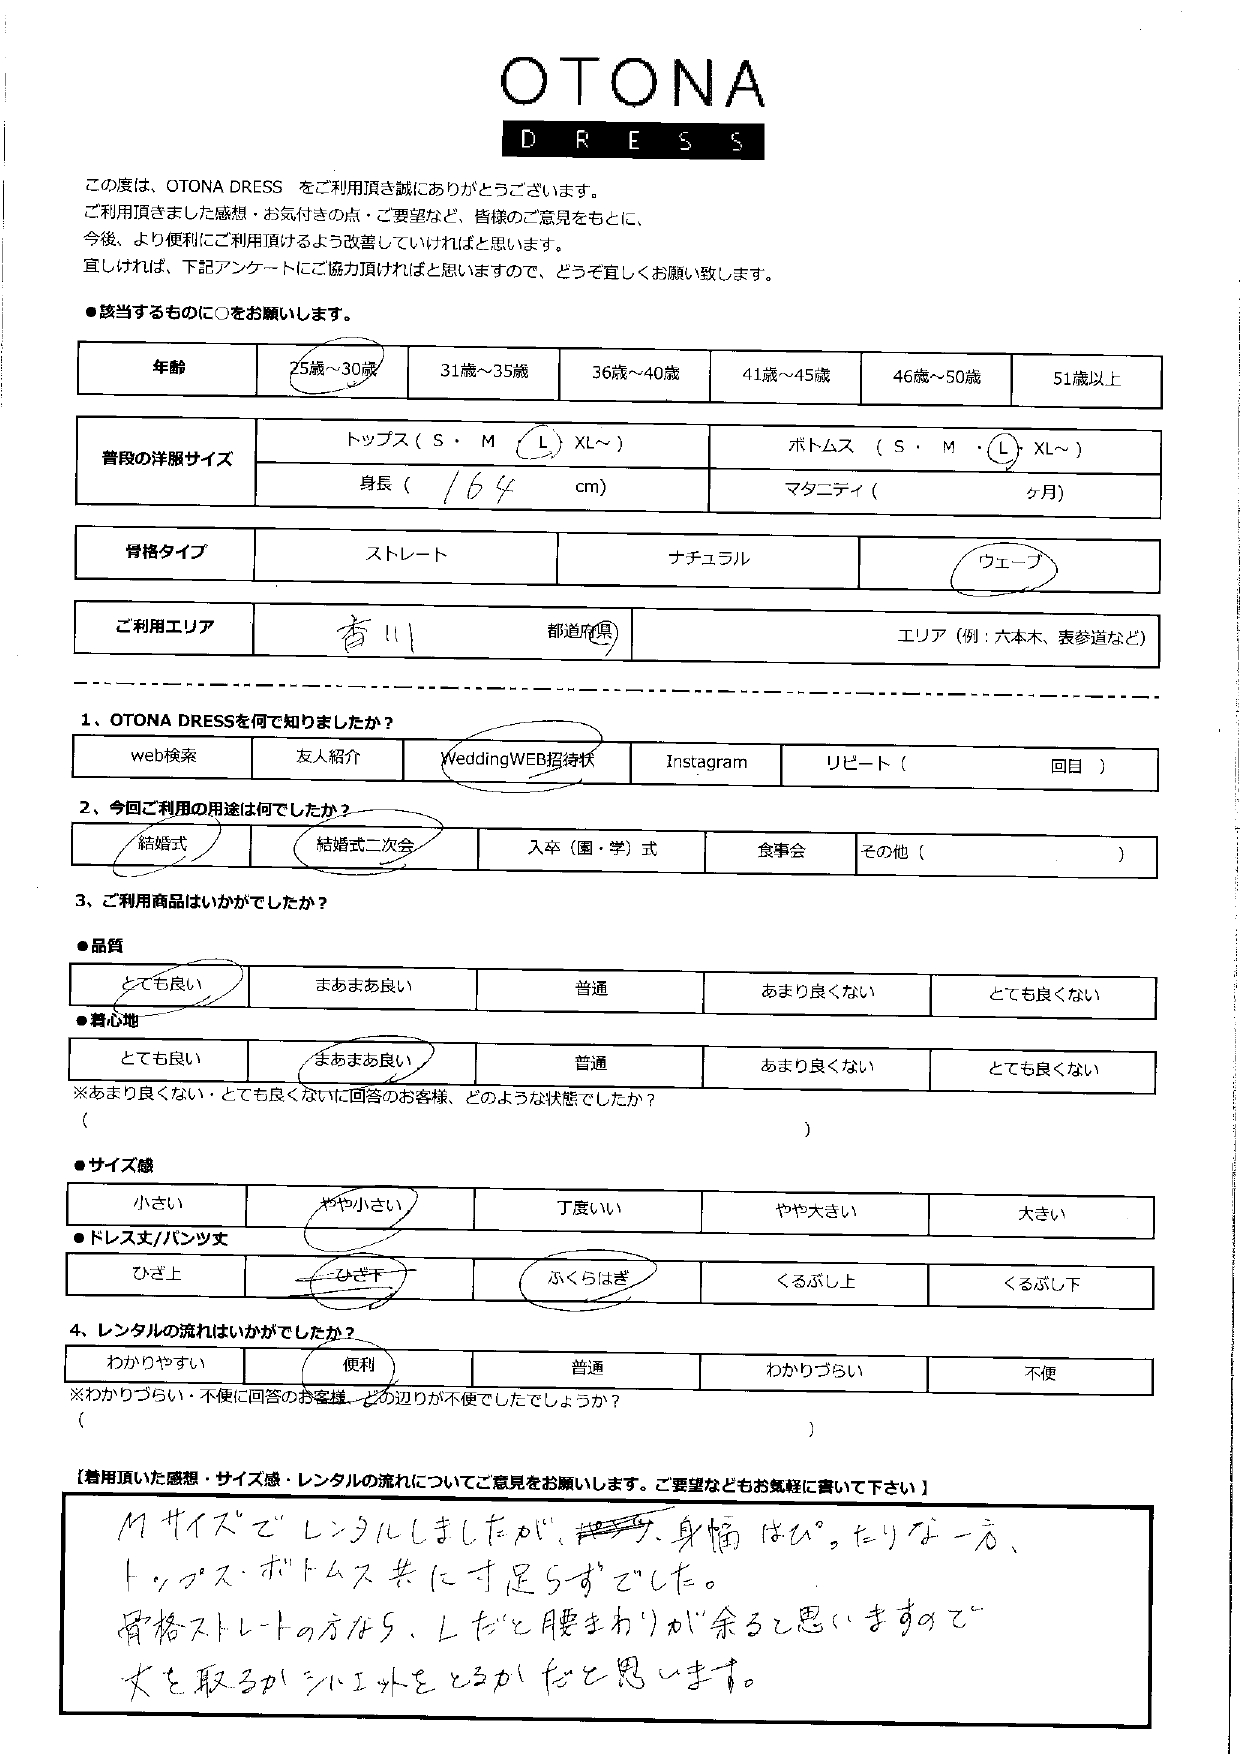 OTONA
DRESS
この度は、OTONA DRESS をご利用頂き誠にありがとうございます。
ご利用頂きました感想・お気付きの点・ご要望など、皆様のご意見をもとに、
今後、より便利にご利用頂けるよう改善していければと思います。
宜しければ、下記アンケートにご協力頂ければと思いますので、どうぞ宜しくお願い致します。
●該当するものに○をお願いします。
年齢 25歳～30歳 31歳～35歳 36歳～40歳 41歳～45歳 46歳～50歳 51歳以上
普段の洋服サイズ トップス ( S ・ M ・ L ・ XL～ ) ボトムス ( S ・ M ・ L ・ XL～ )
身長 ( 164 cm) マタニティ ( ヶ月)
骨格タイプ ストレート ナチュラル ウェーブ
ご利用エリア 香川 都道府県 エリア（例：六本木、表参道など）
1、OTONA DRESSを何で知りましたか？
web検索 友人紹介 WeddingWEB招待状 Instagram リピート（ 回目 ）
2、今回ご利用の用途は何でしたか？
結婚式 結婚式二次会 入卒（園・学）式 食事会 その他（ ）
3、ご利用商品はいかがでしたか？
●品質
とても良い まあまあ良い 普通 あまり良くない とても良くない
●着心地
とても良い まあまあ良い 普通 あまり良くない とても良くない
※あまり良くない・とても良くないに回答のお客様、どのような状態でしたか？
( )
●サイズ感
小さい やや小さい 丁度いい やや大きい 大きい
●ドレス丈/パンツ丈
ひざ上 ひざ下 ふくらはぎ くるぶし上 くるぶし下
4、レンタルの流れはいかがでしたか？
わかりやすい 便利 普通 わかりづらい 不便
※わかりづらい・不便に回答のお客様、どの辺りが不便でしたでしょうか？
( )
【着用頂いた感想・サイズ感・レンタルの流れについてご意見をお願いします。ご要望などもお気軽に書いて下さい】
Mサイズでレンタルしましたが、身幅はぴったりな一方、
トップス・ボトムス共に寸足らずでした。
骨格ストレートの方なら、Lだと腰まわりが余ると思いますので
丈を取るかシルエットをとるかだと思います。